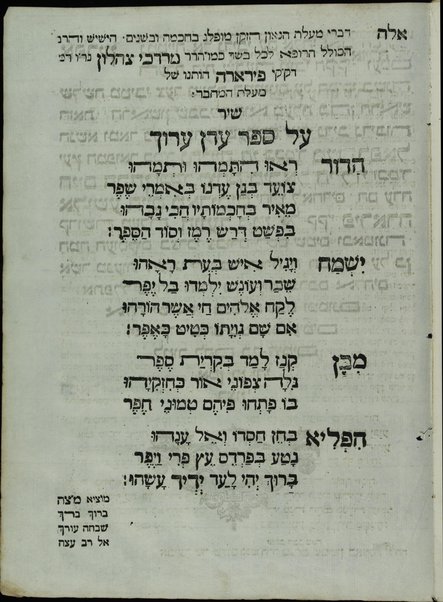 אלה דברי מעלת הגאון הזקן מופלג בחכמה ובשנים הישיש והרב
הכולל הרופא לכל בשר כמוהרר מרדכי צהלון נר״ו דמ
דק״ק פיראדה חותנו של
מעלת המחבר׃
שיר
על ספר עדן ערוך
הדור רְאוּ הִתַּמְּהוּ וּתְמָהוּ
צוֹעֵד בְּגַן עֶדְנוֹ בְּאִמְרֵי שֶׁפֶר
מֵאִיר בְּחָכְמוֹתָיו חֲכַי נָכְהוּ
בִּפְשָׁט דְּרָשׁ רֶמֶז וְסוֹד הַסֵּפֶר׃
יִשְׂמַח וְיָגֵיל אִישׁ בְּעֵת רָאָהוּ
שְׂכַר וְעוֹנֶשׁ יִלְמְדוּ בַל יֻפָר
לֶקַח אֱלֹהִים חַי אֲשֶׁר הוֹרָהוּ
אִם שָׂם גְּוִיָּתוֹ כְּטִיט כָּאֵפֶר׃
מִבֶּן קְנַז לָמַד בְּקִרְיַת סֵפֶר
גִּלָּה צְפוּנֵי אוֹר כְּחִזְקִיָּהוּ
בּוֹ פָתְחוּ פִּיהֶם טְמוּנֵי חֵפֶר
הִפְלִיא בְּחֵן חַסְדּוֹ וְאֵל עָנָהוּ
נָטַע בְּפַרְדֵּס עֵץ פְּרִי וַיֶּפֶר
בָּרוּךְ יְהִי לָעַד יְדִידְךָ עָשָׂהוּ׃
מוציא מצה
ברוך ברך
שבחה עורך
אל רב עצה